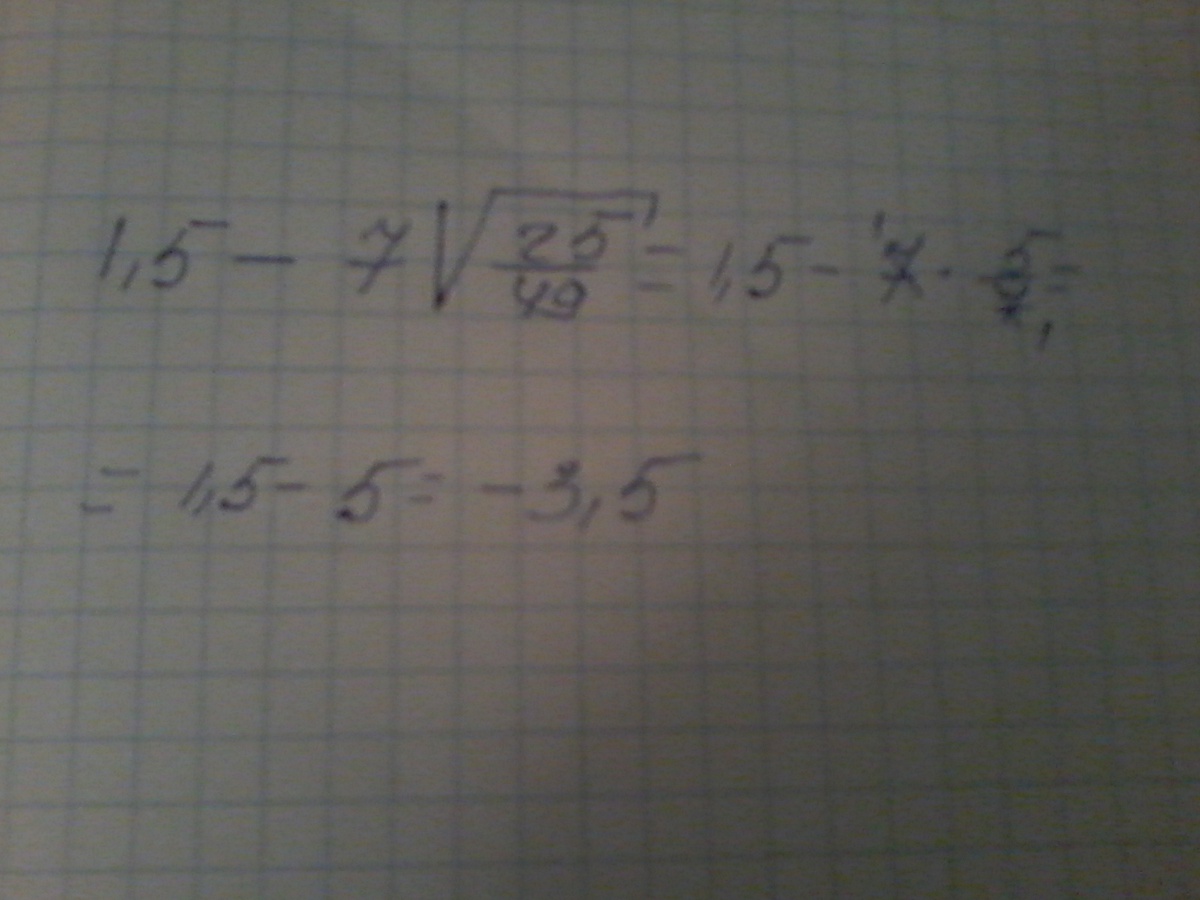 1,5 - 7√(25/49) = 1,5 - 7 · 5/7 =
= 1,5 - 5 = -3,5